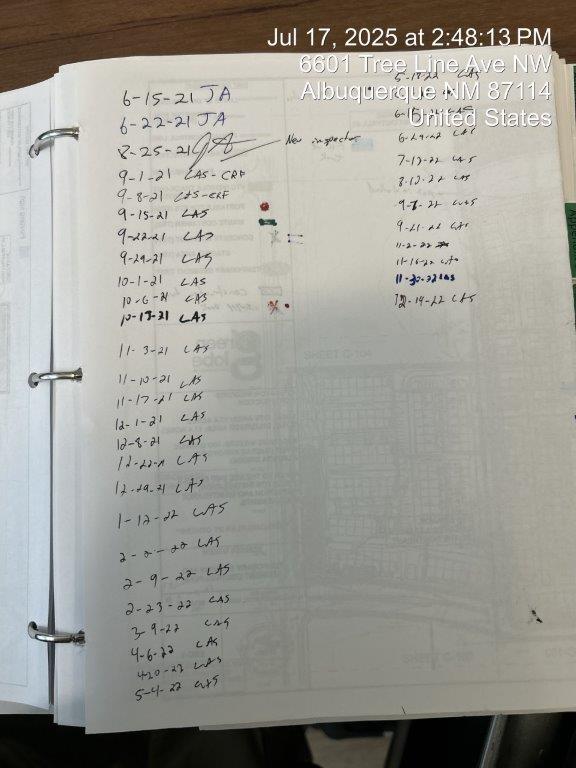 Jul 17, 2025 at 2:48:13 PM
6601 Tree Line Ave NW
Albuquerque NM 87114
United States
6-15-21 JA
6-22-21 JA
8-25-21 JA New inspector
9-1-21 LAS-CRF
9-8-21 LAS-CRF
9-15-21 LAS
9-22-21 LAS
9-29-21 LAS
10-1-21 LAS
10-6-21 LAS
10-13-21 LAS
11-3-21 LAS
11-10-21 LAS
11-17-21 LAS
12-1-21 LAS
12-8-21 LAS
12-22-21 LAS
12-29-21 LAS
1-12-22 LAS
2-2-22 LAS
2-9-22 LAS
2-23-22 LAS
3-9-22 LAS
4-6-22 LAS
4-20-22 LAS
5-4-22 LAS
5-18-22 LAS
6-29-22 LAS
7-13-22 LAS
8-12-22 LAS
9-8-22 LAS
9-21-22 LAS
11-2-22
11-16-22 LAS
11-30-22 LAS
12-14-22 LAS